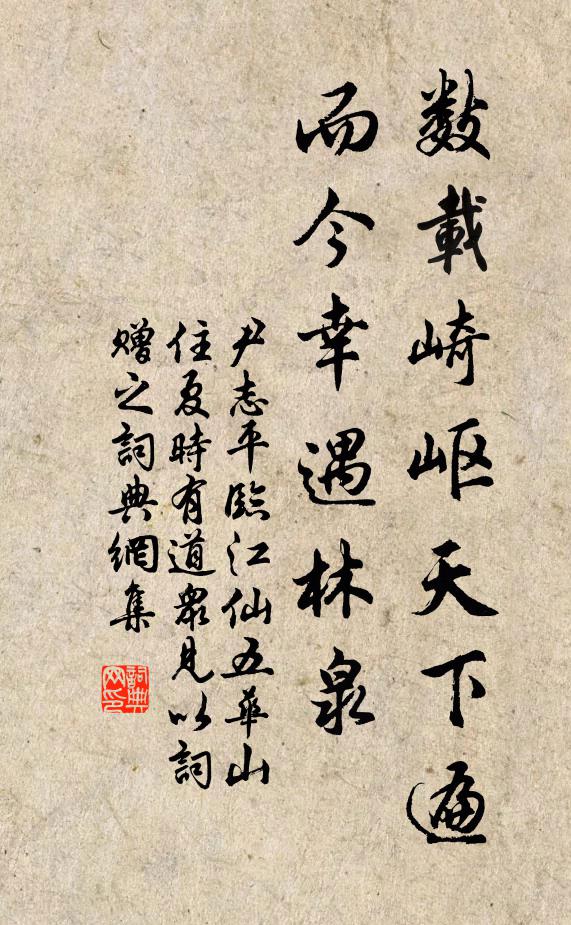 數載崎岖天下遍
而今幸遇林泉
尹志平臨江仙五華山
住夏時有道眾見以詞
赠之詞典網集
詞典网印